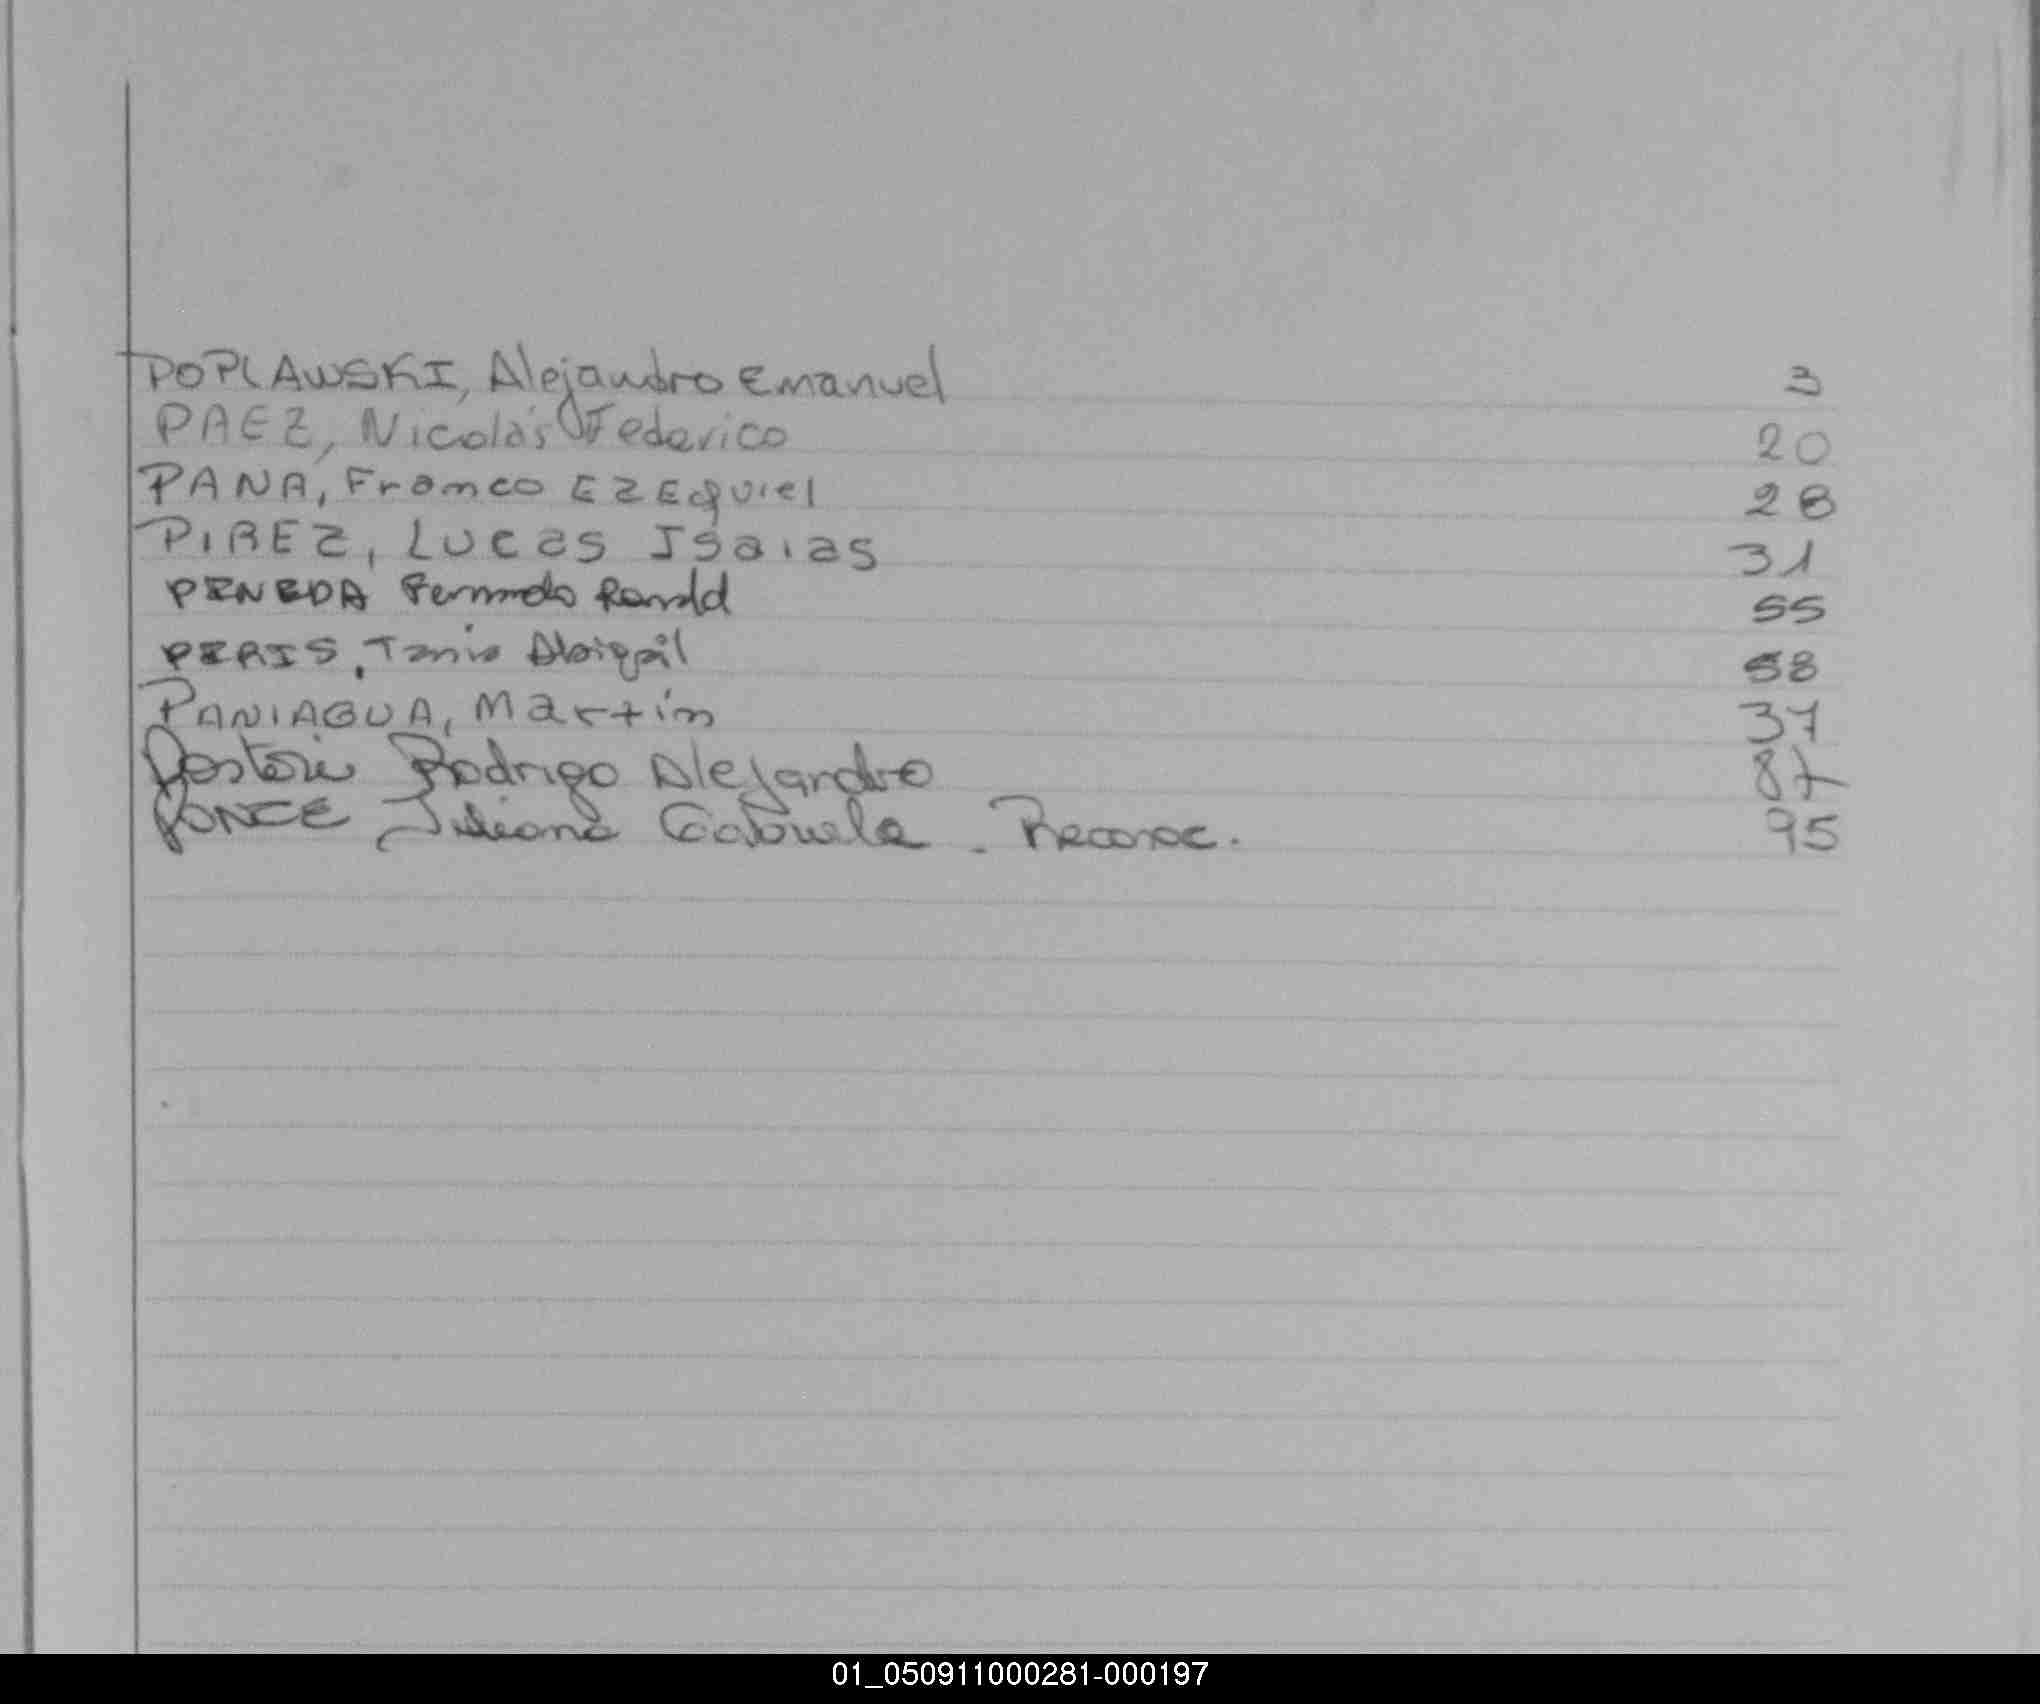 POPLAWSKI, Alejandro Emanuel 3
PAEZ, Nicolás Federico 20
PANA, Franco EZEquiel 28
PIREZ, Lucas Isaias 31
PINEDA Fernando Ronald 55
PERIS, Tania Abigail 58
PANIAGUA, Martín 37
Rodrigo Alejandro 87
PONCE Juliana Gabriela - Reconoc. 95
01_050911000281-000197